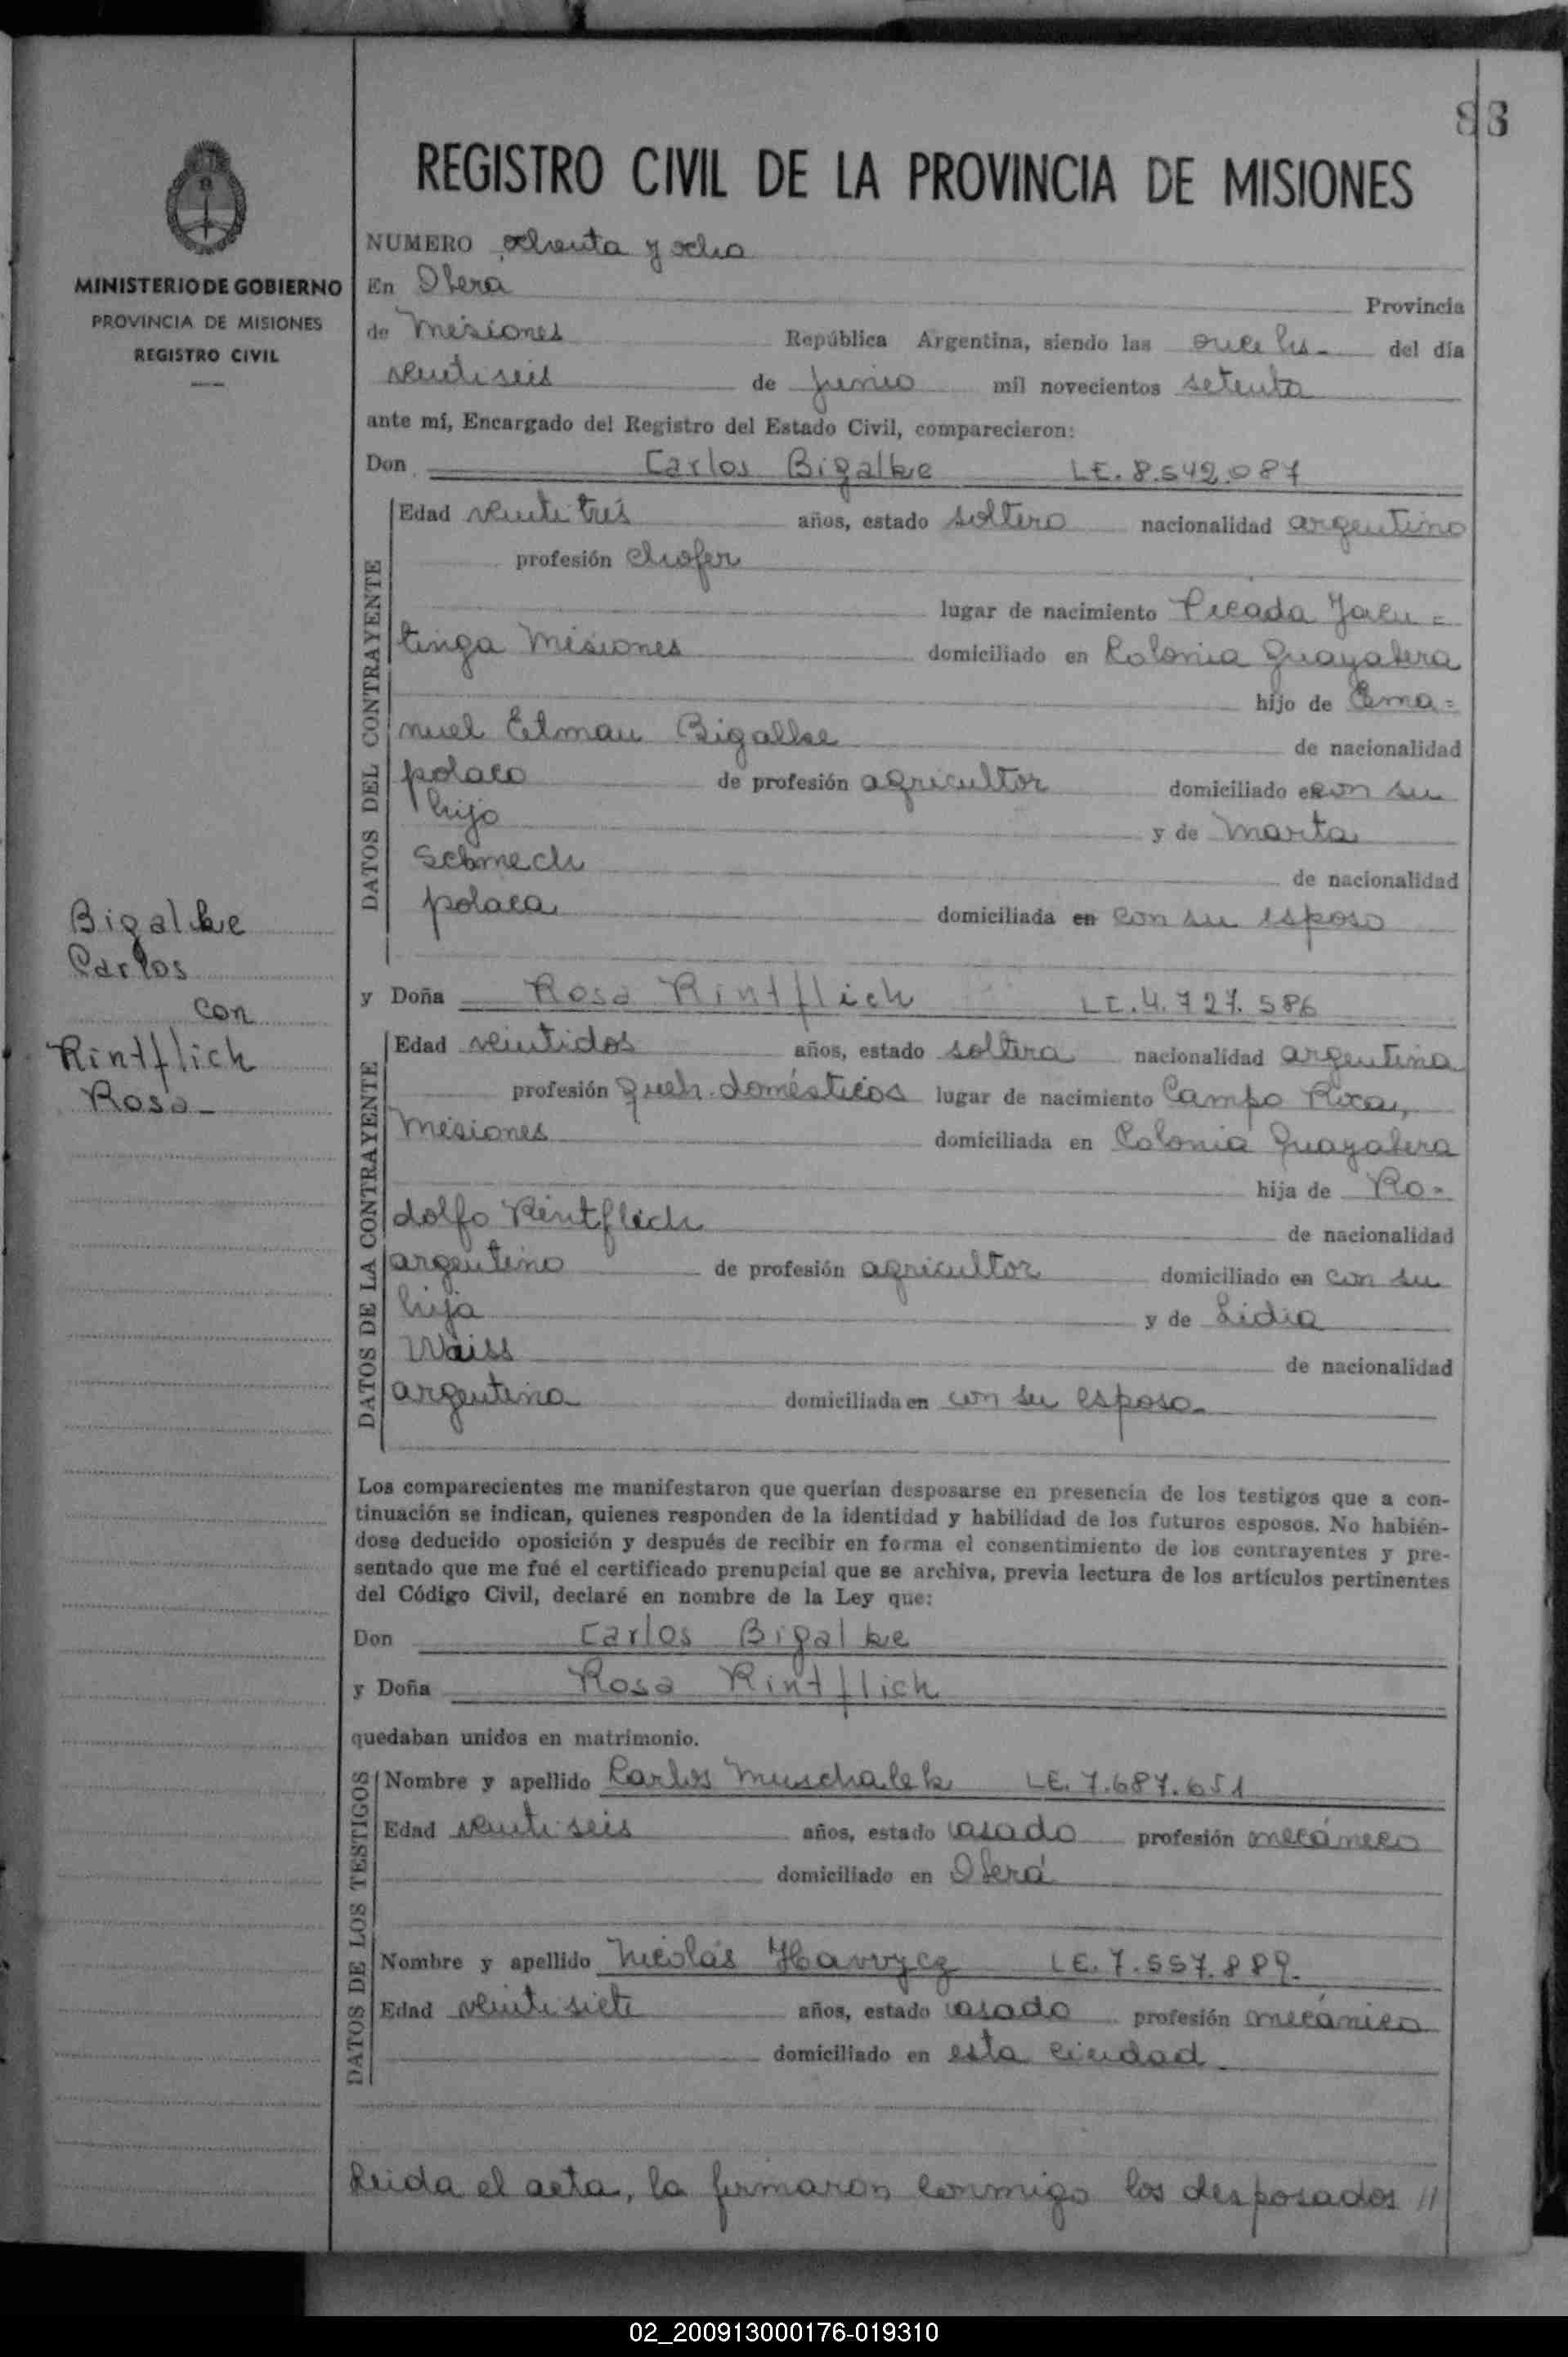 88
REGISTRO CIVIL DE LA PROVINCIA DE MISIONES
MINISTERIO DE GOBIERNO
PROVINCIA DE MISIONES
REGISTRO CIVIL
NUMERO ochenta y ocho
En Oberá Provincia
de Misiones República Argentina, siendo las once hs - del día
veintiseis de junio mil novecientos setenta
ante mí, Encargado del Registro del Estado Civil, comparecieron:
Don Carlos Bigalke LE. 8.542.087
DATOS DEL CONTRAYENTE
Edad veintitrés años, estado soltero nacionalidad argentino
profesión chofer
lugar de nacimiento Picada Yacu =
tinga Misiones domiciliado en Colonia Guayabera
hijo de Ema =
nuel Etman Bigalke de nacionalidad
polaco de profesión agricultor domiciliado con su
hijo y de Marta
Schmech de nacionalidad
polaca domiciliada en con su esposo
Bigalke
Carlos
con
Rintflich
Rosa -
y Doña Rosa Rintflich LC. 4.727.586
DATOS DE LA CONTRAYENTE
Edad veintidos años, estado soltera nacionalidad argentina
profesión queh. domésticos lugar de nacimiento Campo Roca,
Misiones domiciliada en Colonia Guayabera
hija de Ro =
dolfo Rintflich de nacionalidad
argentino de profesión agricultor domiciliado en con su
hija y de Lidia
Waiss de nacionalidad
argentina domiciliada en con su esposo -
Los comparecientes me manifestaron que querían desposarse en presencia de los testigos que a con-
tinuación se indican, quienes responden de la identidad y habilidad de los futuros esposos. No habién-
dose deducido oposición y después de recibir en forma el consentimiento de los contrayentes y pre-
sentado que me fué el certificado prenupcial que se archiva, previa lectura de los artículos pertinentes
del Código Civil, declaré en nombre de la Ley que:
Don Carlos Bigalke
y Doña Rosa Rintflich
quedaban unidos en matrimonio.
DATOS DE LOS TESTIGOS
Nombre y apellido Carlos Muschalek LE. 7.687.651
Edad veintiseis años, estado casado profesión mecánico
domiciliado en Oberá
Nombre y apellido Nicolás Havrycz LE. 7.557.889.
Edad veintisiete años, estado casado profesión mecánico
domiciliado en esta ciudad -
Leida el acta, la firmaron conmigo los desposados //
02_200913000176-019310